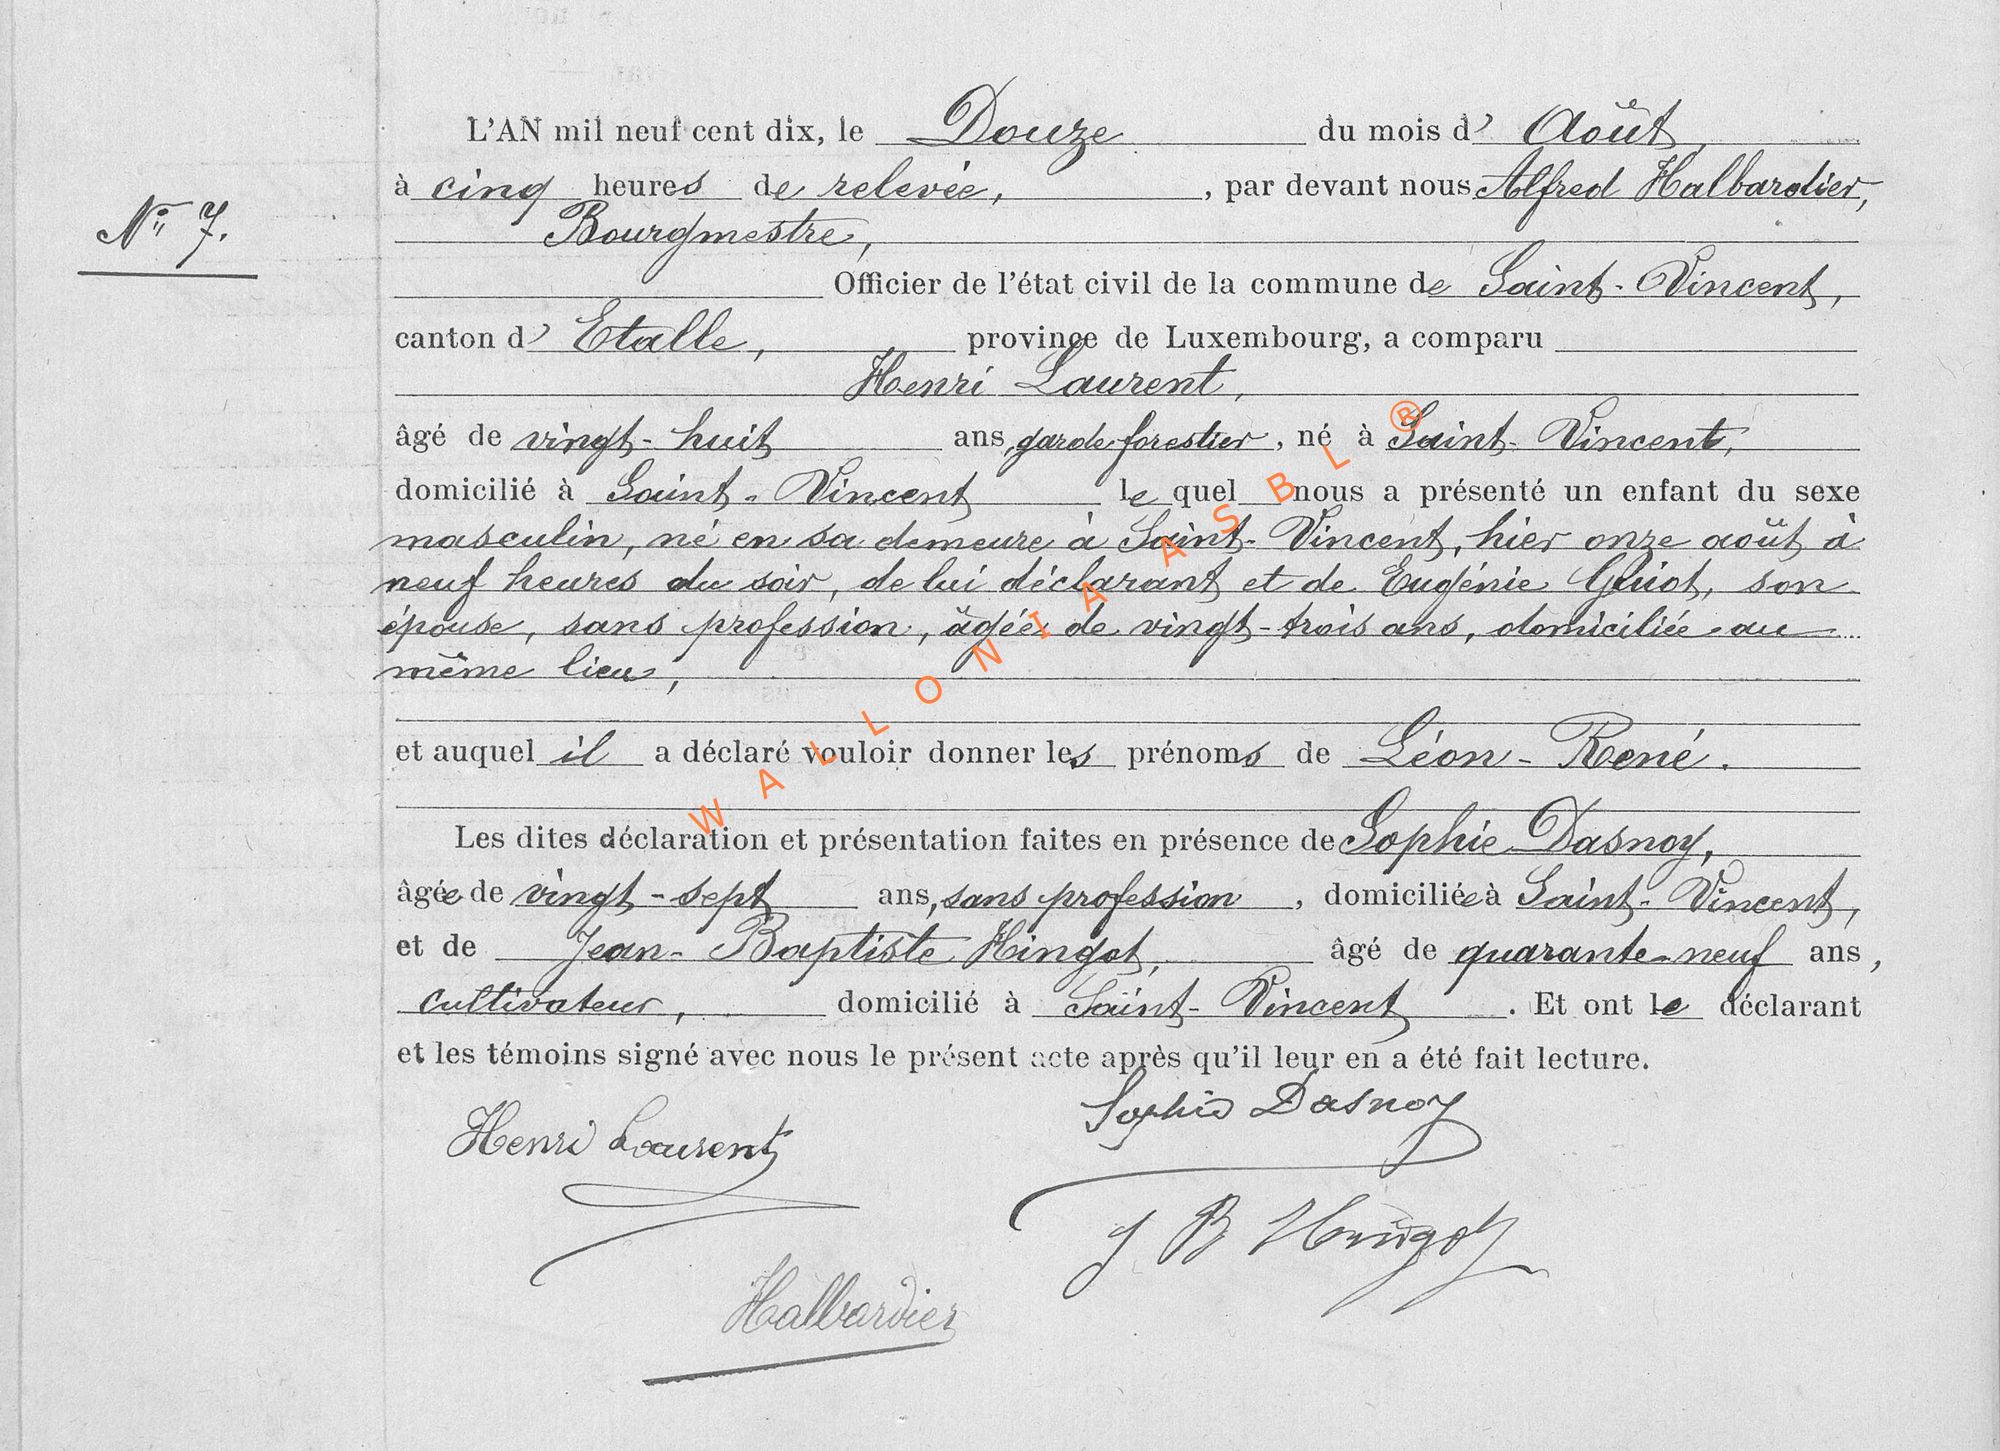 L'AN mil neuf cent dix, le Douze du mois d' Août,
à cinq heures de relevée, , par devant nous Alfred Halbardier,
N° 7.
Bourgmestre,
Officier de l'état civil de la commune de Saint-Vincent,
canton d' Etalle, province de Luxembourg, a comparu
Henri Laurent,
âgé de vingt-huit ans, garde forestier, né à Saint-Vincent,
domicilié à Saint-Vincent le quel nous a présenté un enfant du sexe
masculin, né en sa demeure à Saint-Vincent, hier onze août à
neuf heures du soir, de lui déclarant et de Eugénie son
épouse, sans profession, âgée de vingt-trois ans, domiciliée au
même lieu,
et auquel il a déclaré vouloir donner les prénoms de Léon-René.
Les dites déclaration et présentation faites en présence de Sophie Dasnoy,
âgée de vingt-sept ans, sans profession , domiciliée à Saint-Vincent,
et de Jean-Baptiste Hingot, âgé de quarante-neuf ans,
cultivateur, domicilié à Saint-Vincent . Et ont le déclarant
et les témoins signé avec nous le présent acte après qu'il leur en a été fait lecture.
Sophie Dasnoy
Henri Laurent
J B Hingot
Halbardier
WALLONIA ASBL ®